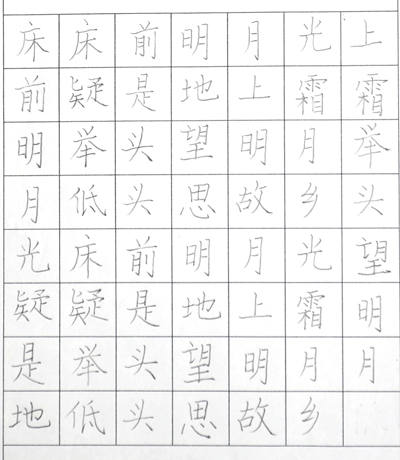 床床前明月光上
前疑是地上霜霜
明举头望明月举
月低头思故乡头
光床前明月光望
疑疑是地上霜明
是举头望明月月
地低头思故乡